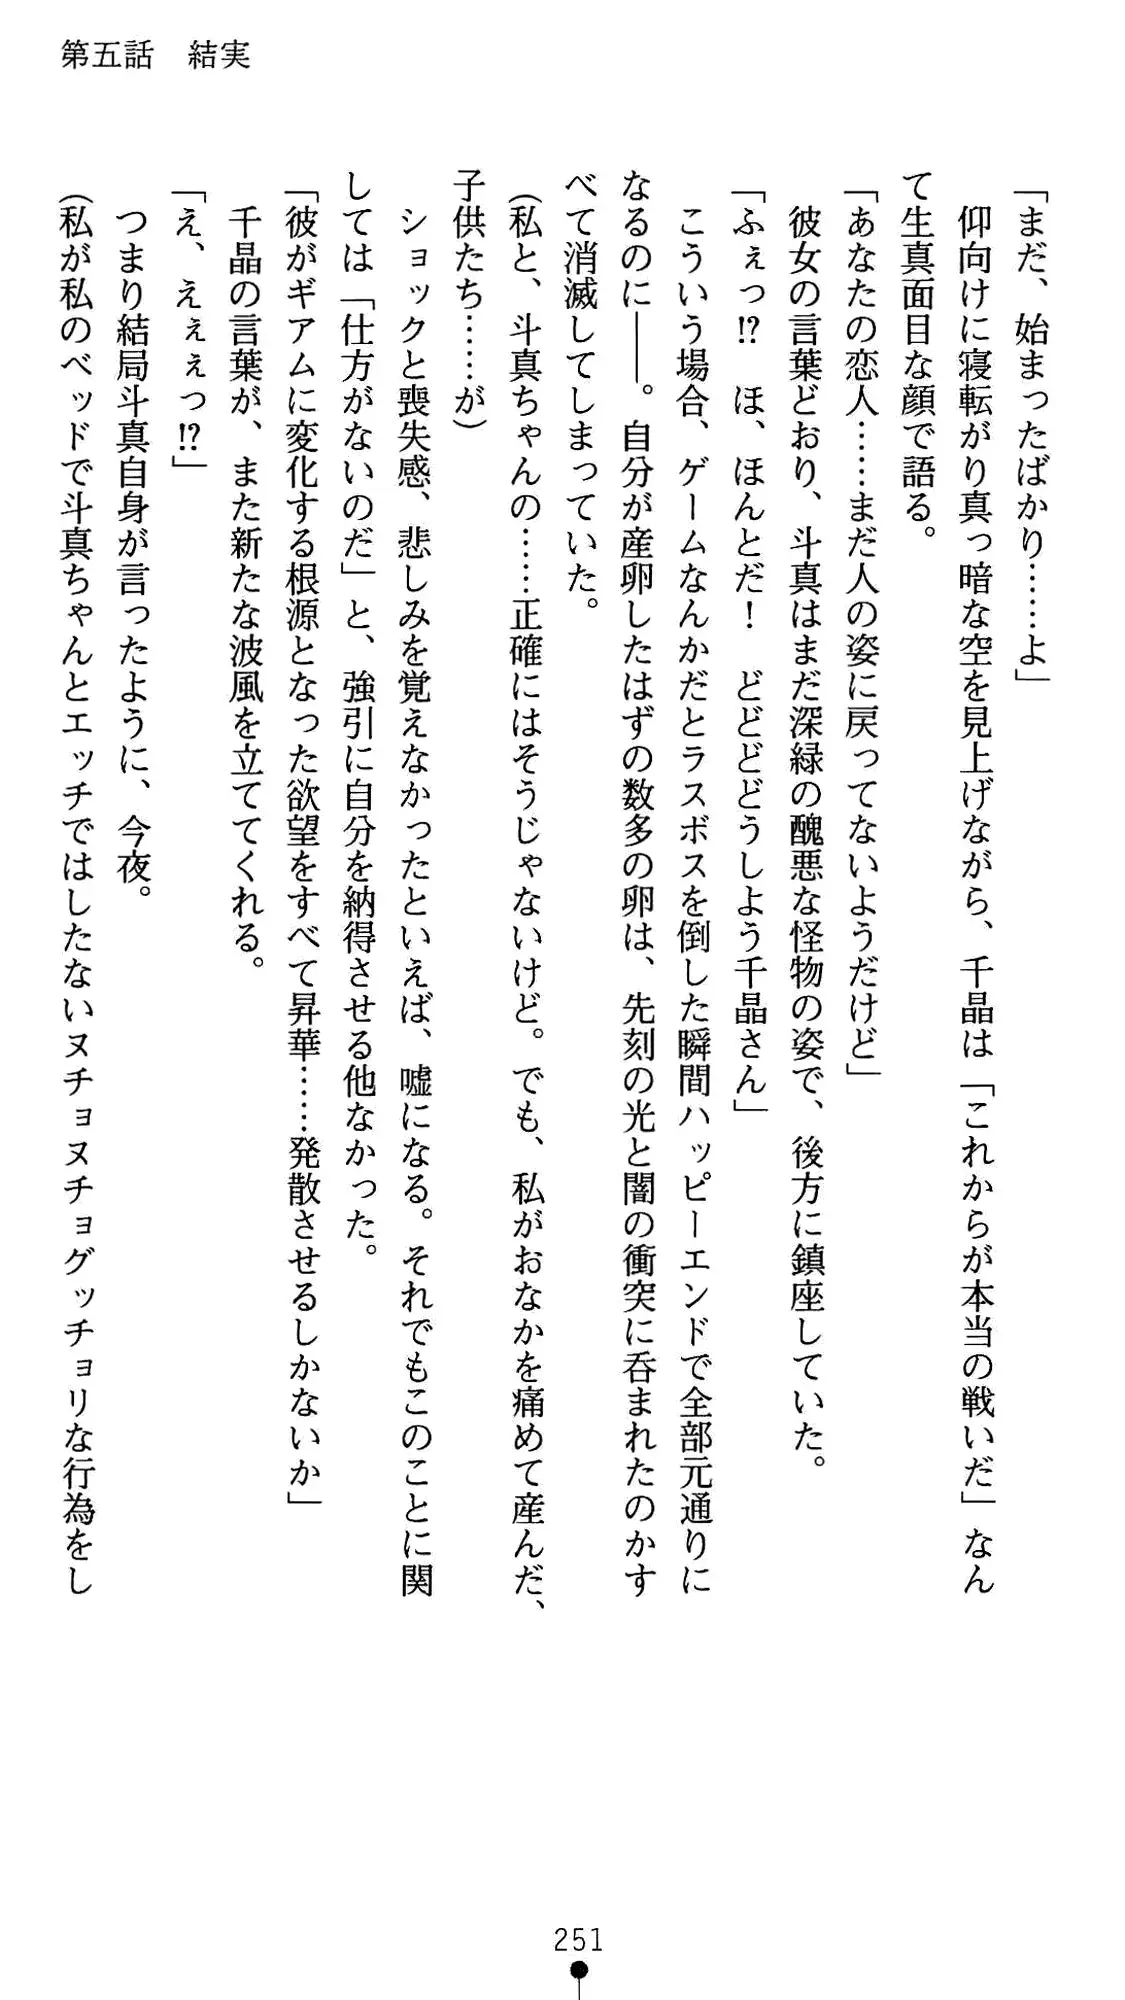 第五話　結実
「まだ、始まったばかり……よ」
　仰向けに寝転がり真っ暗な空を見上げながら、千晶は「これからが本当の戦いだ」なん
て生真面目な顔で語る。
「あなたの恋人……まだ人の姿に戻ってないようだけど」
　彼女の言葉どおり、斗真はまだ深緑の醜悪な怪物の姿で、後方に鎮座していた。
「ふぇっ!?　ほ、ほんとだ！　どどどどうしよう千晶さん」
　こういう場合、ゲームなんかだとラスボスを倒した瞬間ハッピーエンドで全部元通りに
なるのに――。自分が産卵したはずの数多の卵は、先刻の光と闇の衝突に呑まれたのかす
べて消滅してしまっていた。
（私と、斗真ちゃんの……正確にはそうじゃないけど。でも、私がおなかを痛めて産んだ、
子供たち……が）
　ショックと喪失感、悲しみを覚えなかったといえば、嘘になる。それでもこのことに関
しては「仕方がないのだ」と、強引に自分を納得させる他なかった。
「彼がギアムに変化する根源となった欲望をすべて昇華……発散させるしかないか」
　千晶の言葉が、また新たな波風を立ててくれる。
「え、えぇぇっ!?」
　つまり結局斗真自身が言ったように、今夜。
（私が私のベッドで斗真ちゃんとエッチではしたないヌチョヌチョグッチョリな行為をし
251